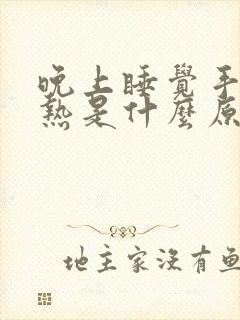 晚上睡覺手
熱是什麼原
地主家沒有魚